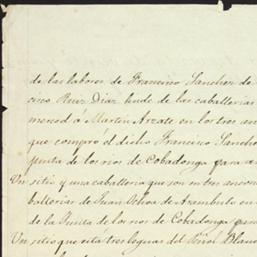 de las labores de Francisco Sanchez de
cisco Ruiz Diaz linde de las caballerias
merced á Martin Arzate en los tres an
que compró el dicho Francisco Sanch
junta de los rios de Cobadonga para a
Un sitio y una caballeria que son en tres ancon
ballerias de Juan Ochoa de Arambulo en
de la Junta de los rios de Cobadonga
Un sitio que está tres leguas del Peñol Blanc